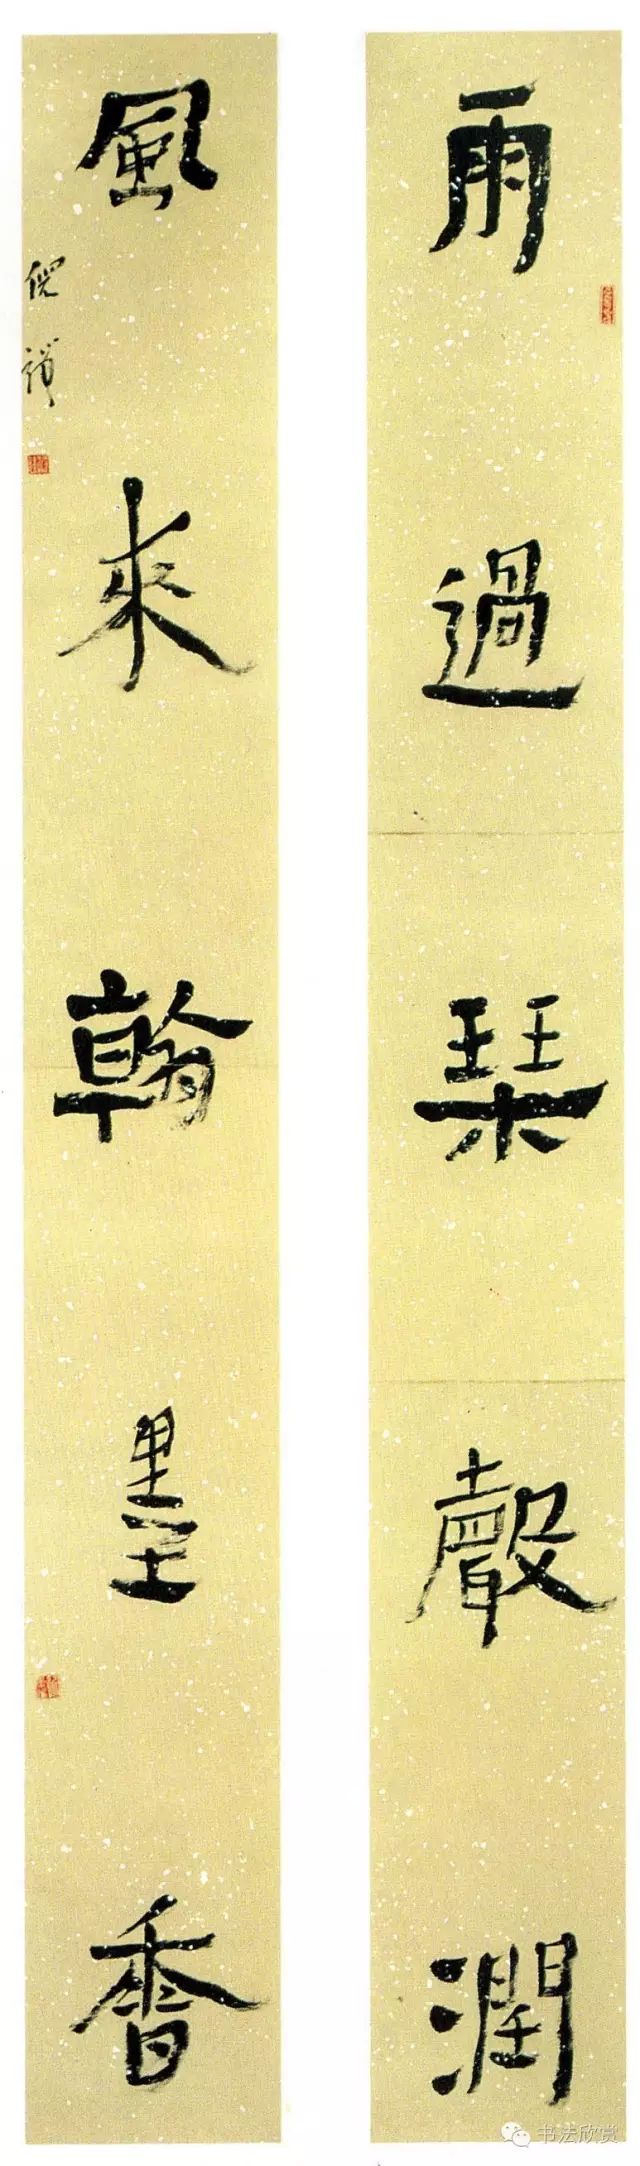 雨過琹聲潤
風來翰墨香
书法欣赏